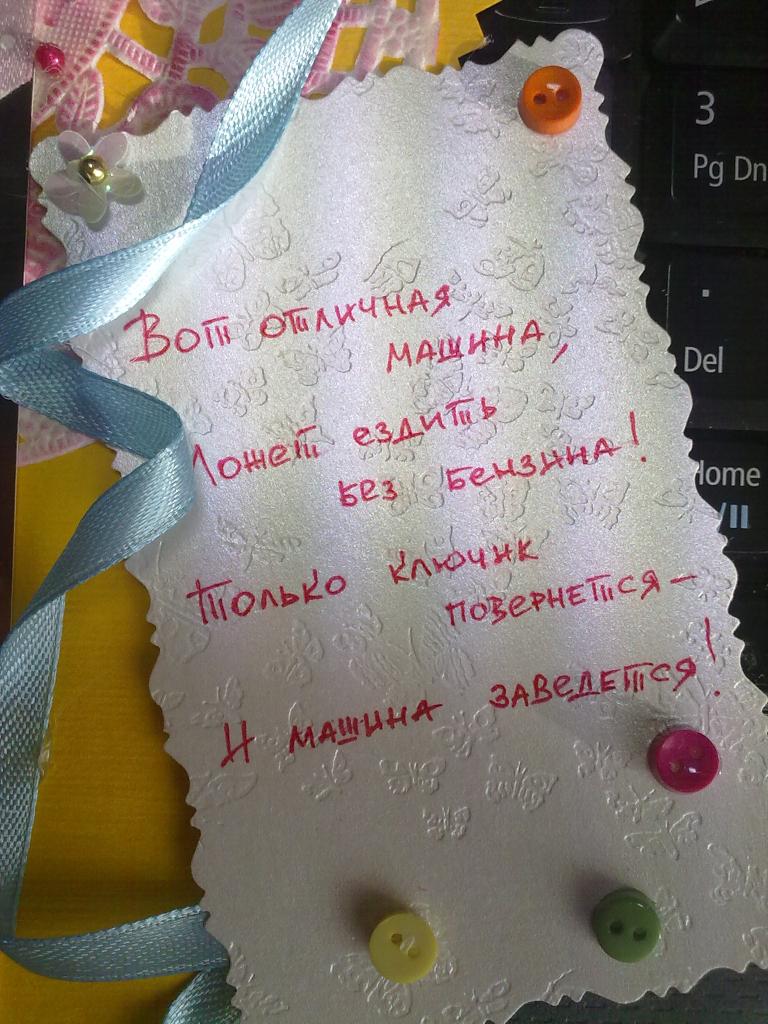 Вот отличная
машина,
Может ездить
без бензина!
Только ключик
повернется –
И машина заведется!
3
Pg Dn
.
Del
Home
/II